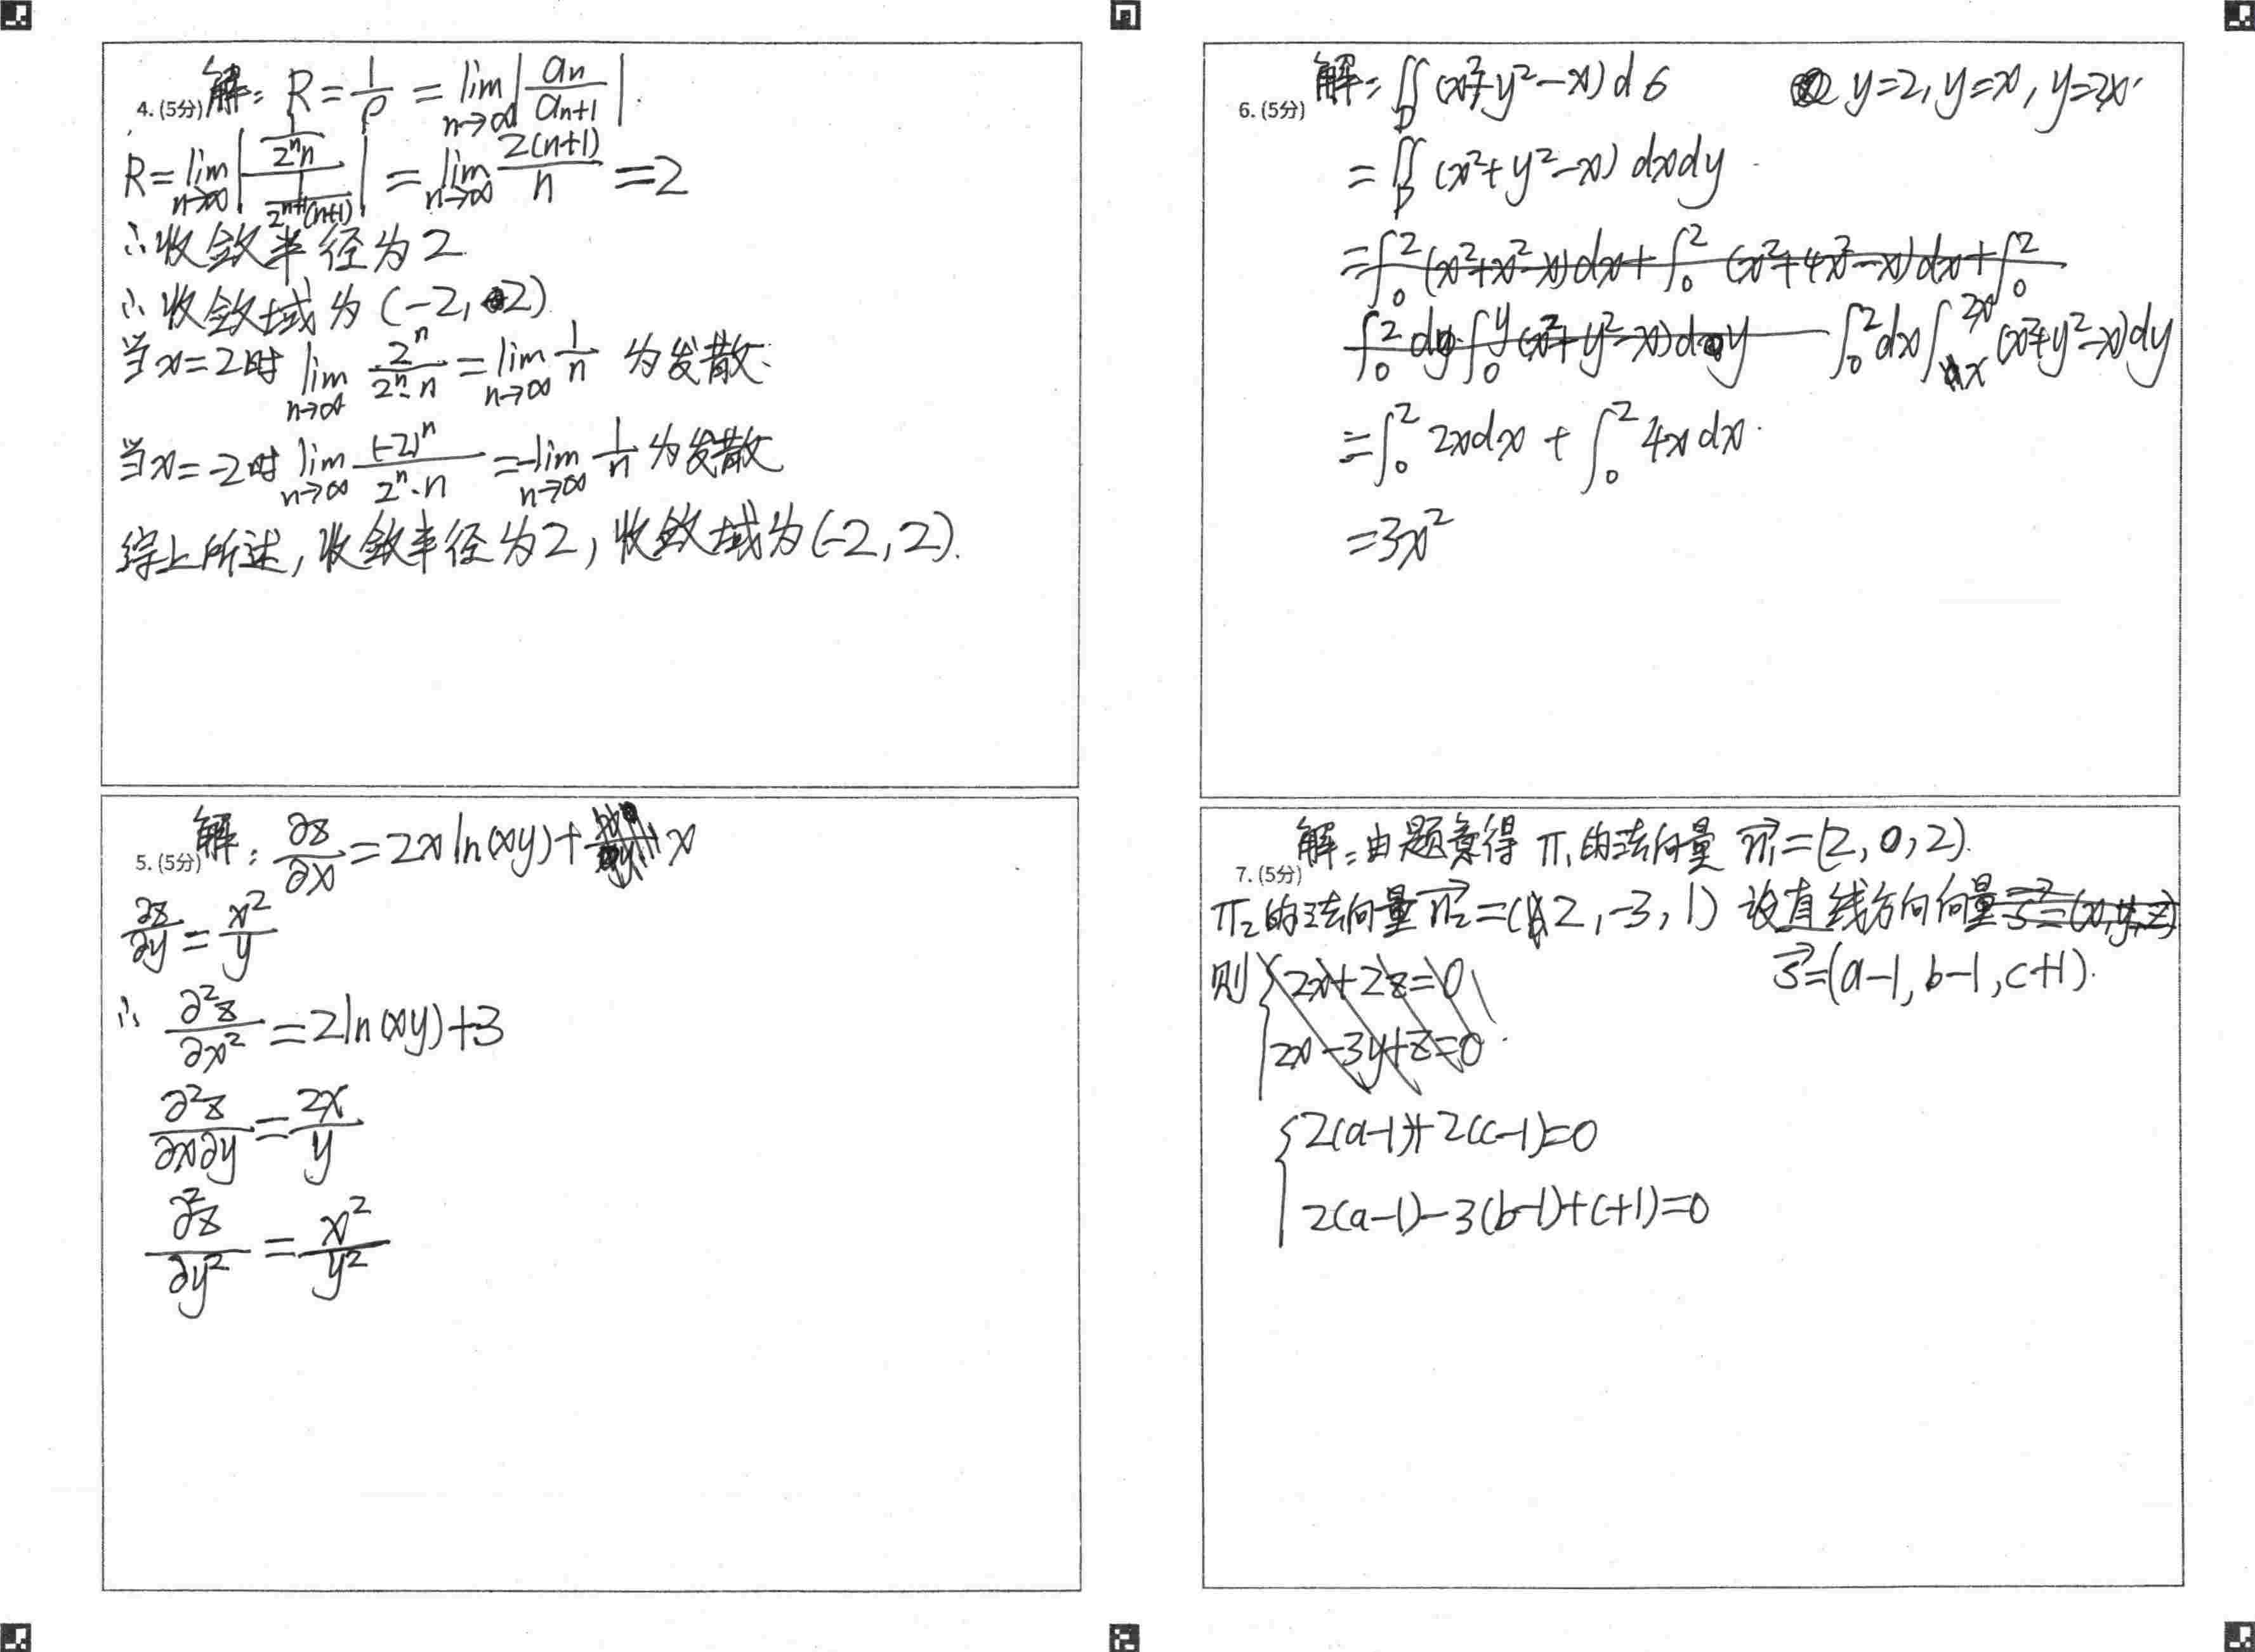 4. (5分) 解: R = 1/ρ = lim n→∞ |an/an+1|
R = lim n→∞ |(1/2ⁿn)/(1/2ⁿ⁺¹(n+1))| = lim n→∞ 2(n+1)/n = 2
∴收敛半径为2
∴收敛域为(-2, 2)
当x=2时 lim n→∞ 2ⁿ/2ⁿ·n = lim n→∞ 1/n 为发散.
当x=-2时 lim n→∞ (-2)ⁿ/2ⁿ·n = -lim n→∞ 1/n 为发散
综上所述, 收敛半径为2, 收敛域为(-2, 2).
5. (5分) 解: ∂z/∂x = 2x ln(xy) + x
∂z/∂y = x²/y
∴ ∂²z/∂x² = 2ln(xy)+3
∂²z/∂x∂y = 2x/y
∂²z/∂y² = x²/y²
6. (5分) 解: ∬D (x²+y²-x)dσ y=2, y=x, y=2x.
= ∬D (x²+y²-x) dxdy
= ∫₀² (x²+x²-x)dx + ∫₀² (x²+4x²-x)dx + ∫₀²
∫₀² dy ∫₀^y (x²+y²-x)dy ∫₀² dx ∫ₓ^2x (x²+y²-x)dy
= ∫₀² 2xdx + ∫₀² 4xdx.
= 3x²
7. (5分) 解: 由题意得 π₁的法向量 n₁=(2, 0, 2).
π₂的法向量 n₂=(2, -3, 1) 设直线方向向量 s=(x, y, z)
s=(a-1, b-1, c+1).
则 { 2x+2z=0
2x-3y+z=0.
{ 2(a-1)+2(c-1)=0
2(a-1)-3(b-1)+(c+1)=0